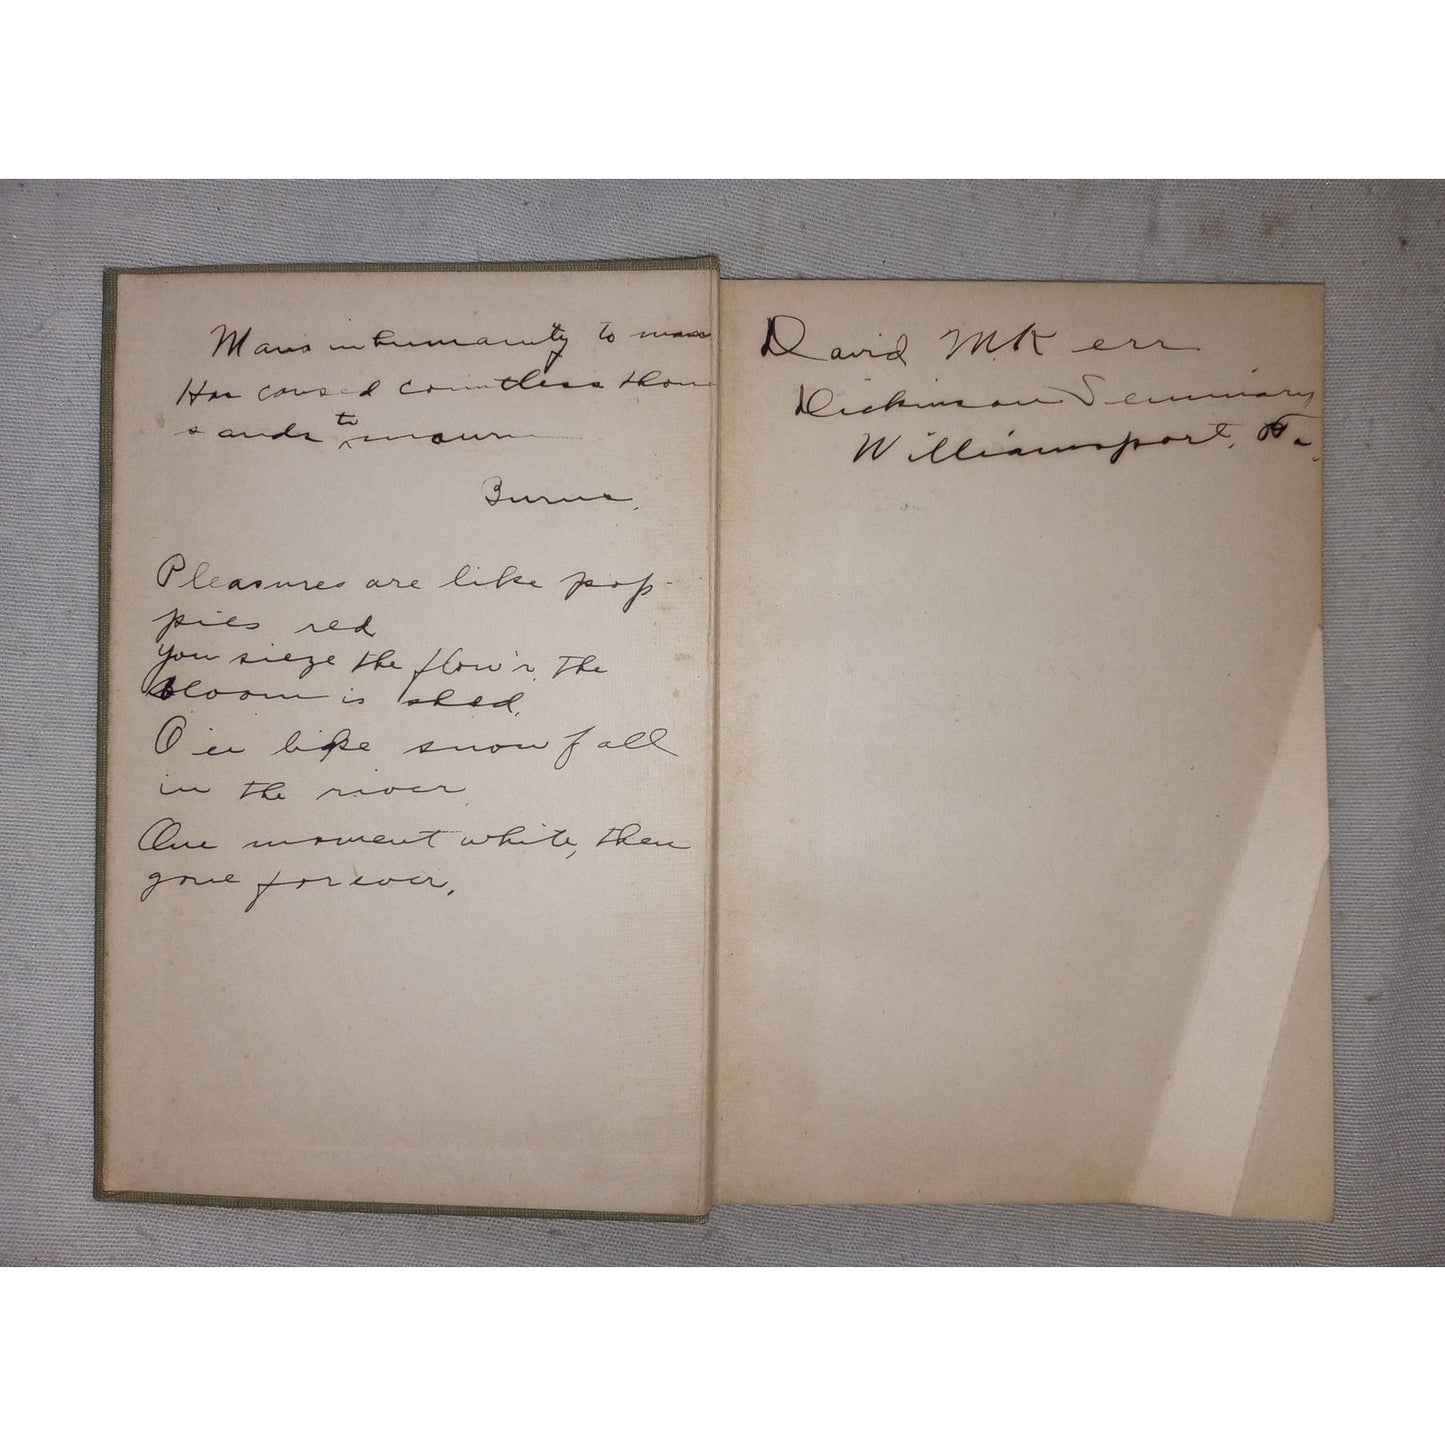 Mans inhumanity to man
Has caused countless thou
sands to mourn
Burns.
Pleasures are like pop-
pies red
You sieze the flow'r, the
bloom is shed.
O'er like snow fall
in the river
One moment white, then
gone forever.
David M. Kerr
Dickinson Seminary
Williamsport, Pa.